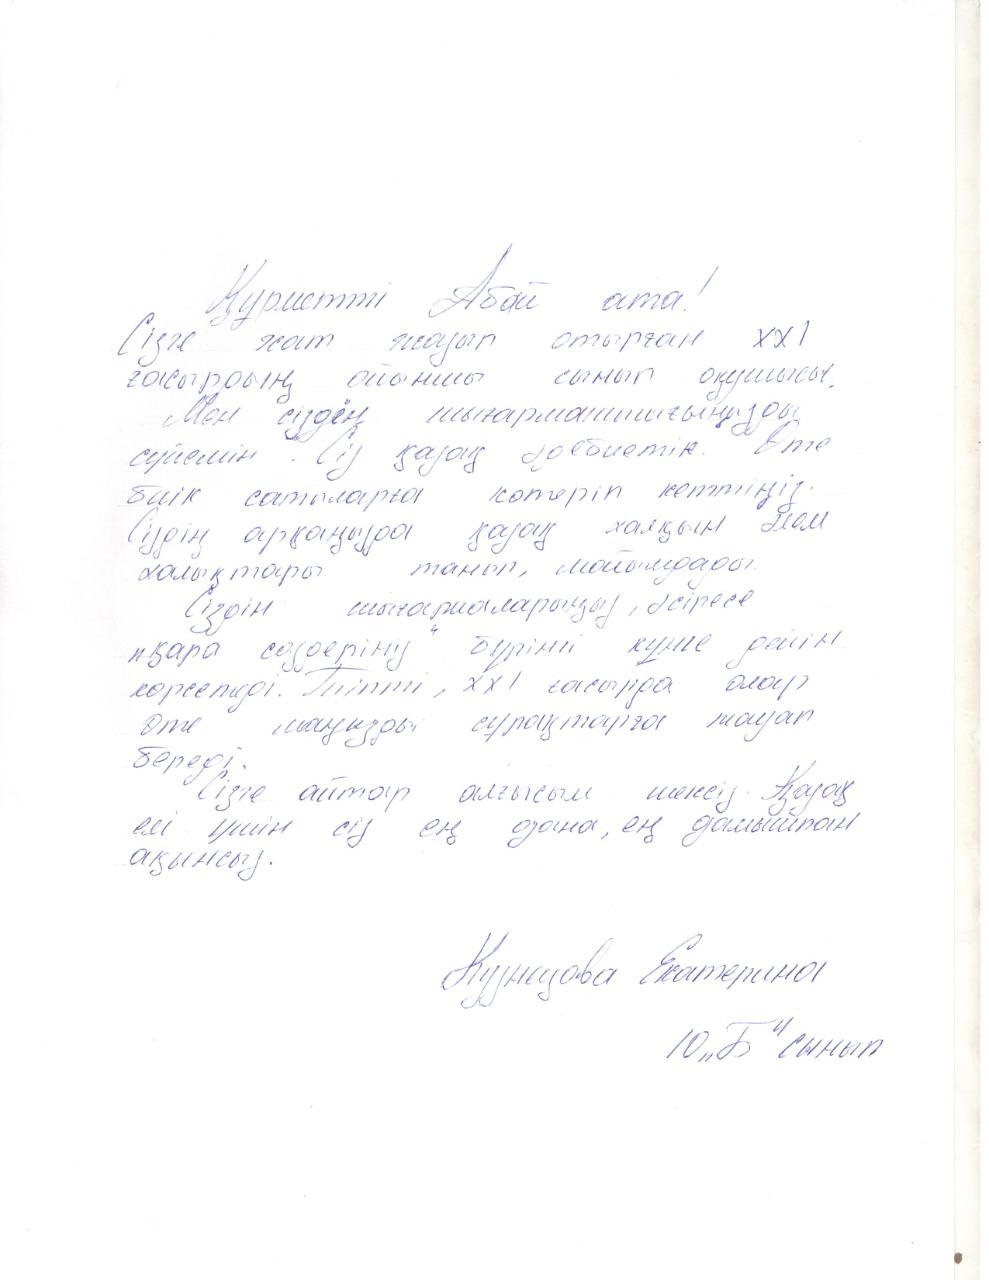 Құрметті Абай ата!
Сізге хат жазып отырған XXI
ғасырдың ойыншы сынып оқушысы.
Мен сіздең шығармашылығыңызды
сүйемін. Сіз қазақ әдебиетін. Өте
биік сатыларға көтеріп кеттіңіз.
Сіздің арқаңызда қазақ халқын әлем
халықтары танып, мойымдады.
Сіздін шығармаларыңыз, әсіресе
"қара сөздеріңіз" бүгінгі күнге дейін
көрсетеді. Тіпті, XXI ғасырда олар
өте маңызды сұрақтарға жауап
береді.
Сізге айтар алғысым шексіз. Қазақ
елі үшін сіз ең дана, ең дамышпан
ақынсыз.
Кузнецова Екатерина
10 „Б" сынып